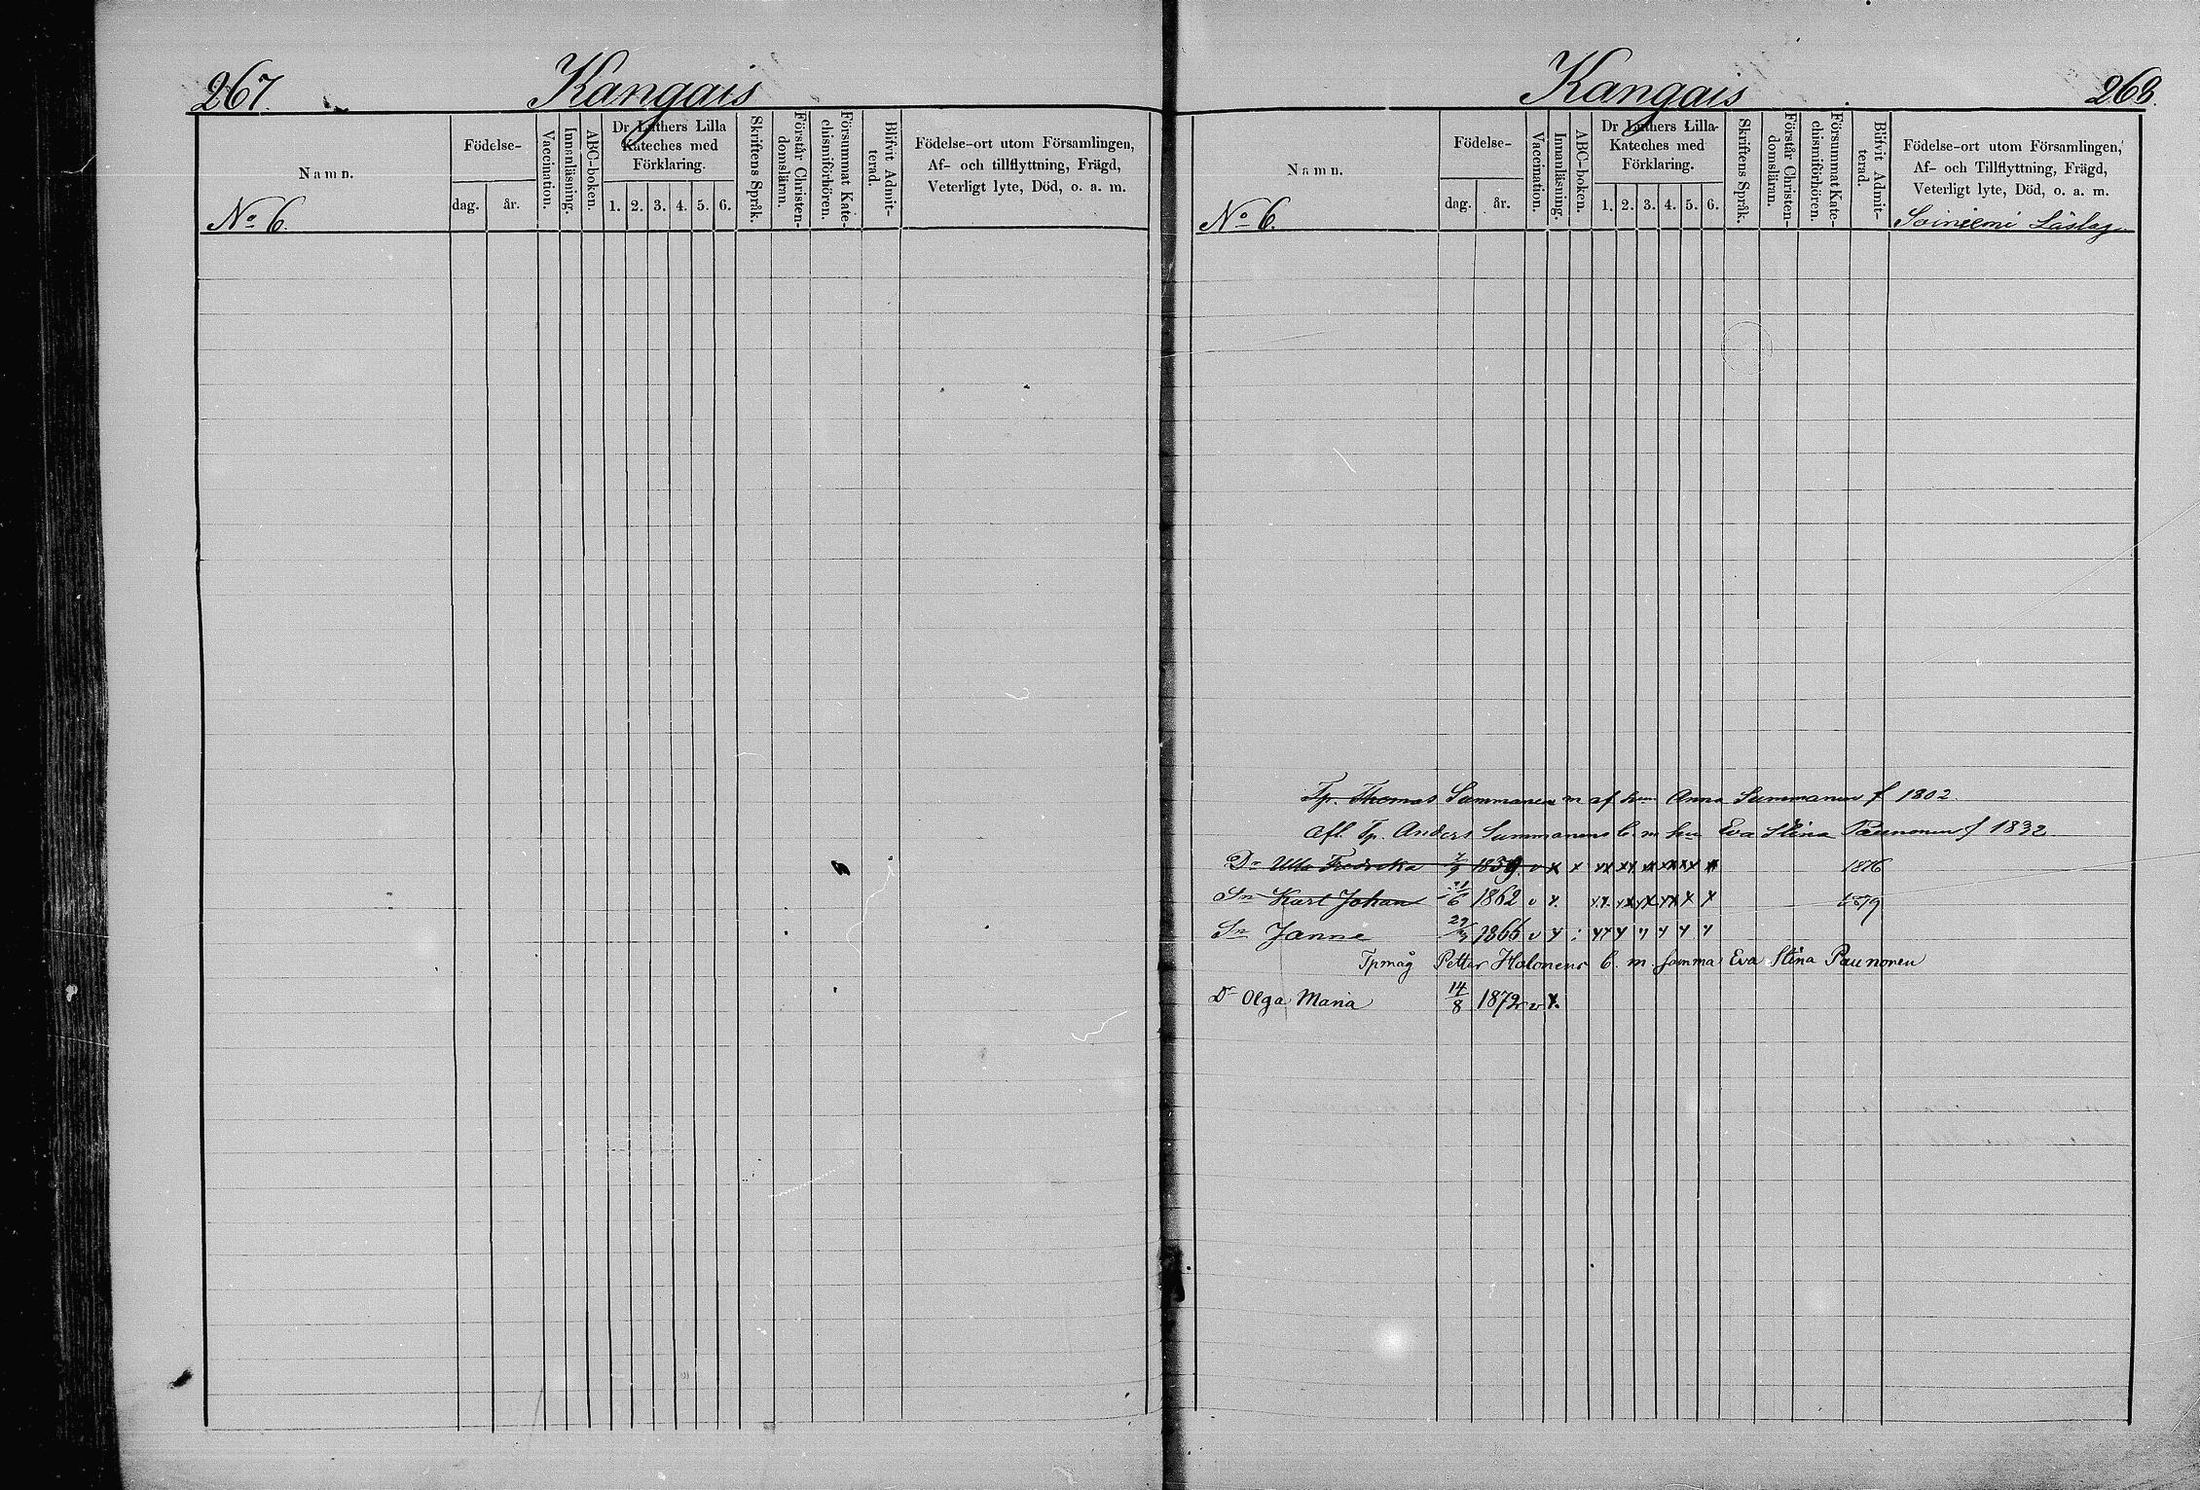 267. Kangais
Namn.
Födelse-
dag. år.
Vaccination.
Innanläsning.
ABC-boken.
Dr Luthers Lilla
Kateches med
Förklaring.
1. 2. 3. 4. 5. 6.
Skriftens Språk.
Förstår Christen-
domsläran.
Försummat Kate-
chismiförhören.
Blifvit Admit-
terad.
Födelse-ort utom Församlingen,
Af- och tillflyttning, Frägd,
Veterligt lyte, Död, o. a. m.
No 6.
Kangais 268.
Namn.
Födelse-
dag. år.
Vaccination.
Innanläsning.
ABC-boken.
Dr Luthers Lilla
Kateches med
Förklaring.
1. 2. 3. 4. 5. 6.
Skriftens Språk.
Förstår Christen-
domsläran.
Försummat Kate-
chismiförhören.
Blifvit Admit-
terad.
Födelse-ort utom Församlingen,
Af- och Tillflyttning, Frägd,
Veterligt lyte, Död, o. a. m.
No 6. Soiniemi Läslag
Tp. Thomas Summanen m af hm Anna Summanen f 1802.
Afl. Tp. Anders Summanens b. m hu Eva Stina Paunonen f 1832
Dr Ulla Fredrika 1859 v x x xx xx 1876
Sn Karl Johan 1862 v x. 1879
Sn Janne 1866 v
Tpmåg Petter Holonens b. m. samma Eva Stina Paunonen
Dr Olga Maria 14/8 1872 v x.